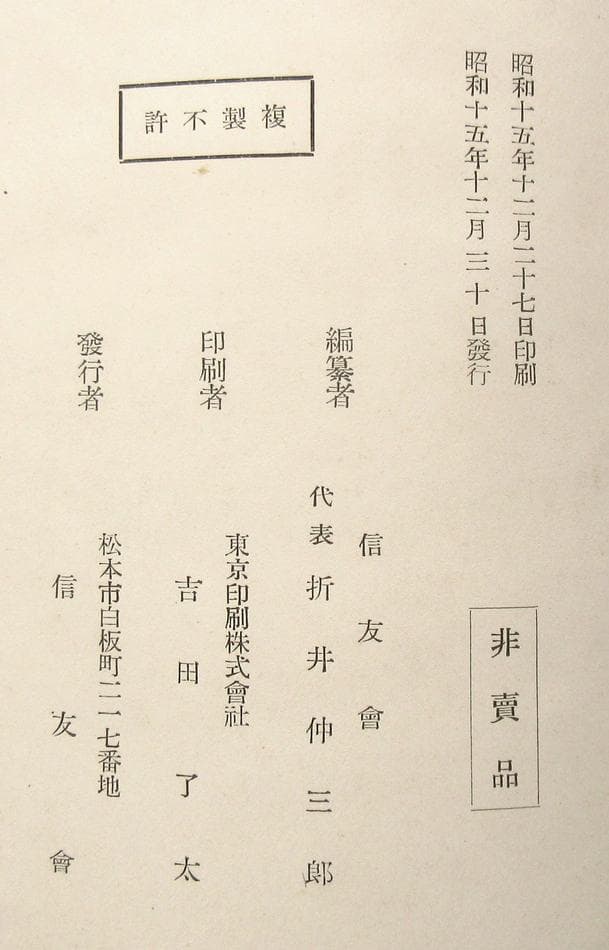 昭和十五年十二月二十七日印刷
昭和十五年十二月三十日發行
非賣品
複製不許
編纂者
信友會
代表折井仲三郎
印刷者
東京印刷株式會社
吉田了太
發行者
松本市白板町二一七番地
信友會